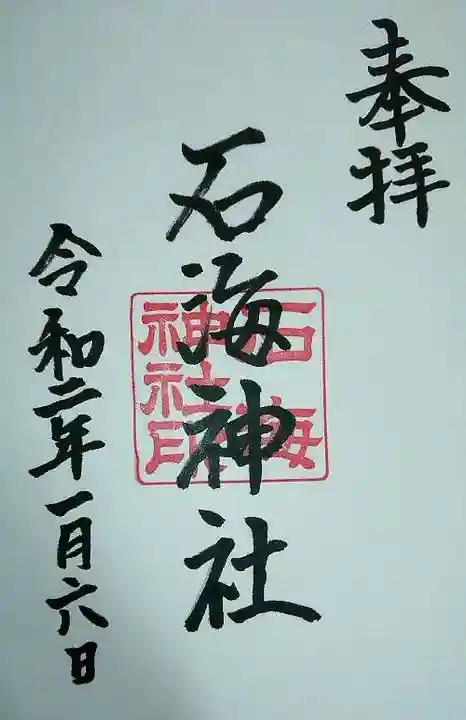 奉拝
石海神社
石海神社印
令和二年一月六日